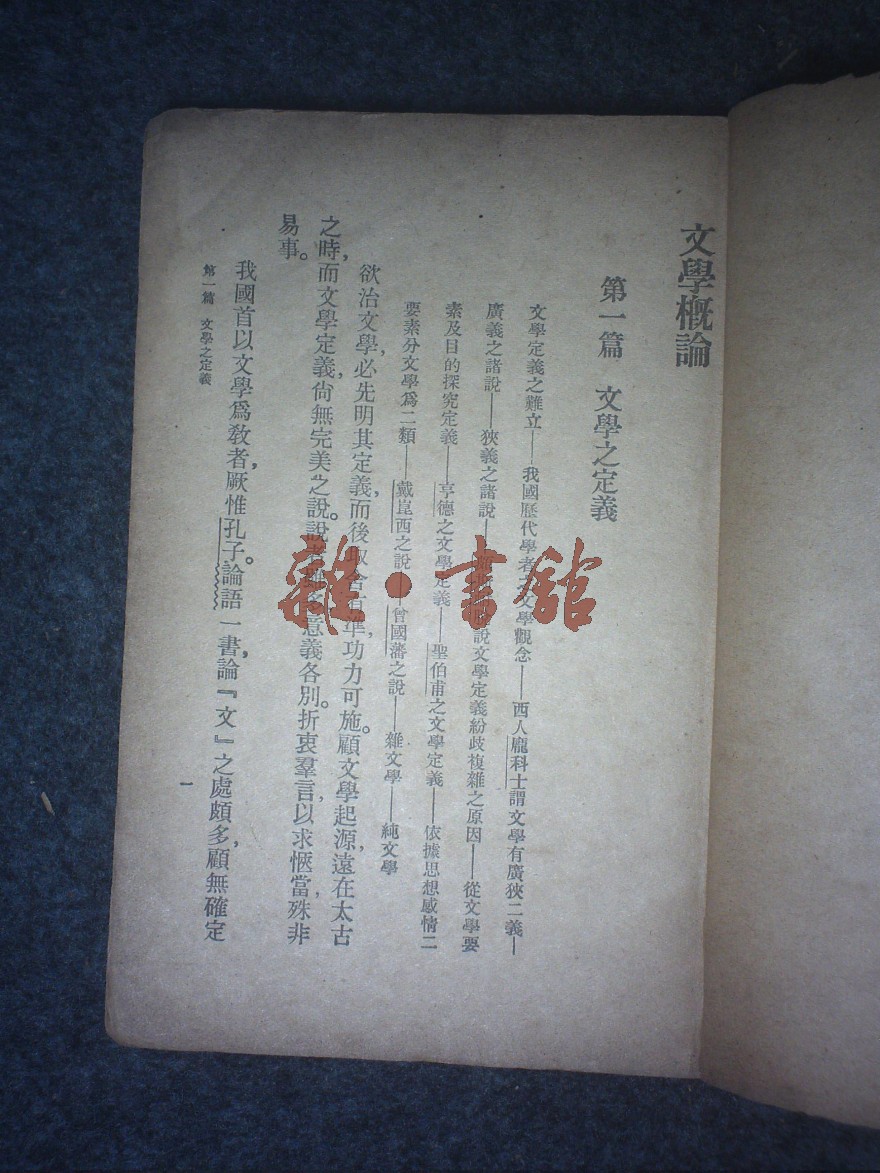 文學概論
第一篇 文學之定義
文學定義之難立——我國歷代學者之文學觀念——西人龐科士謂文學有廣狹二義——
廣義之諸說——狹義之諸說——說文學定義紛歧複雜之原因——從文學要
素及目的探究定義——亨德之文學定義——聖伯甫之文學定義——依據思想感情二
要素分文學爲二類——戴崑西之說——曾國藩之說——雜文學——純文學
欲治文學,必先明其定義,而後取舍有準,功力可施。顧文學起源,遠在太古
之時,而文學定義,尙無完美之說。說者雖多,意義各別。折衷羣言,以求愜當,殊非
易事。
我國首以文學爲敎者,厥惟孔子。論語一書,論『文』之處頗多,顧無確定
第一篇 文學之定義
一
雜·書館